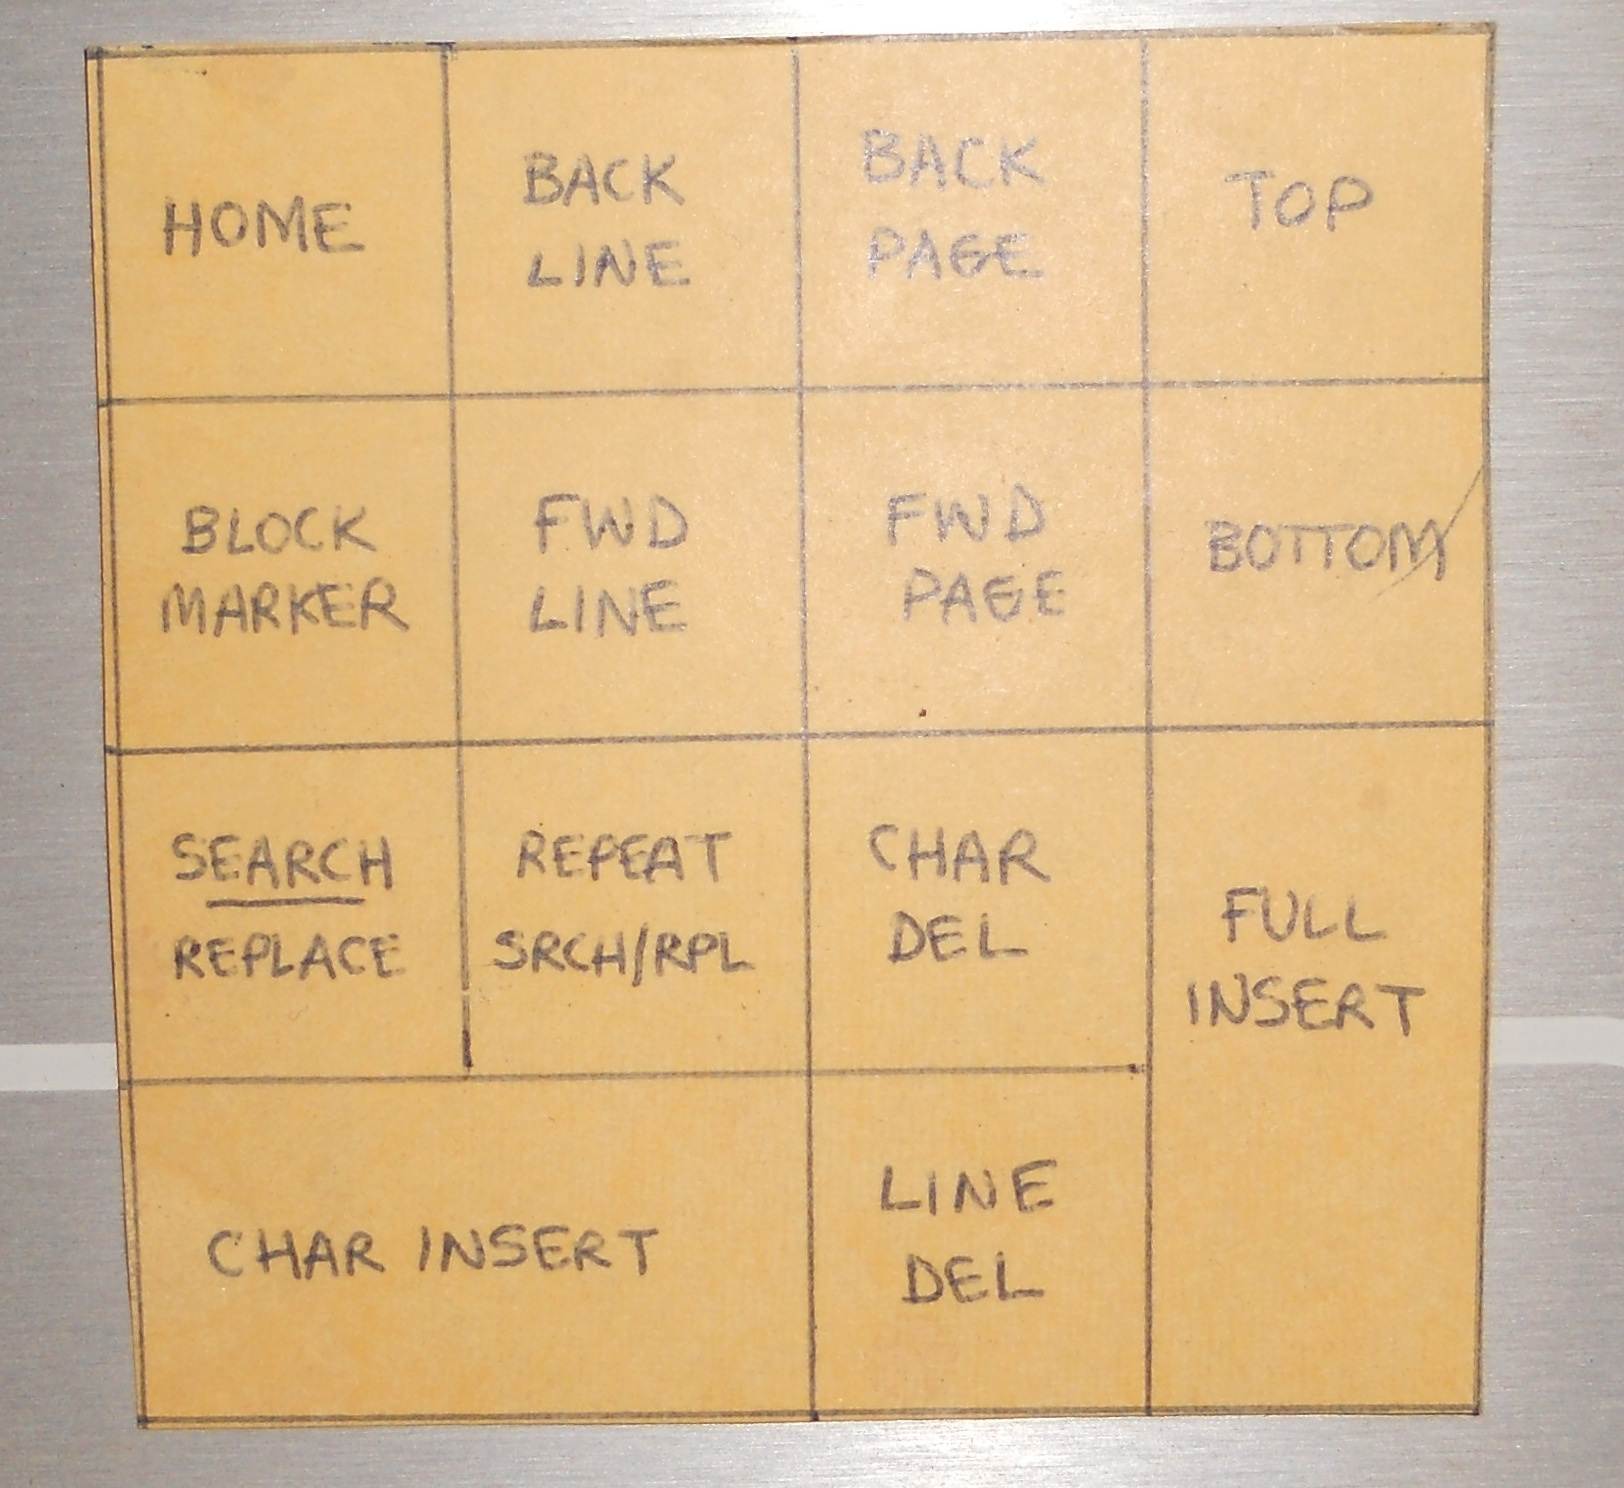 HOME
BACK
LINE
BACK
PAGE
TOP
BLOCK
MARKER
FWD
LINE
FWD
PAGE
BOTTOM
SEARCH
REPLACE
REPEAT
SRCH/RPL
CHAR
DEL
FULL
INSERT
CHAR INSERT
LINE
DEL